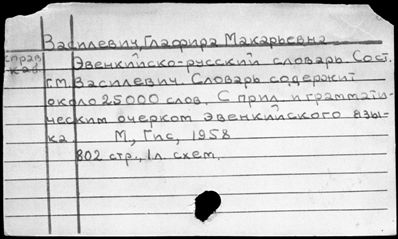 Василевич, Глафира Макарьевна
справ Эвенкийско-русский словарь. Сост.
каб Г.М. Василевич. Словарь содержит
около 25000 слов. С прил. и граммати-
ческим очерком эвенкийского язы-
ка. М, Гис, 1958
802 стр., 1 л. схем.